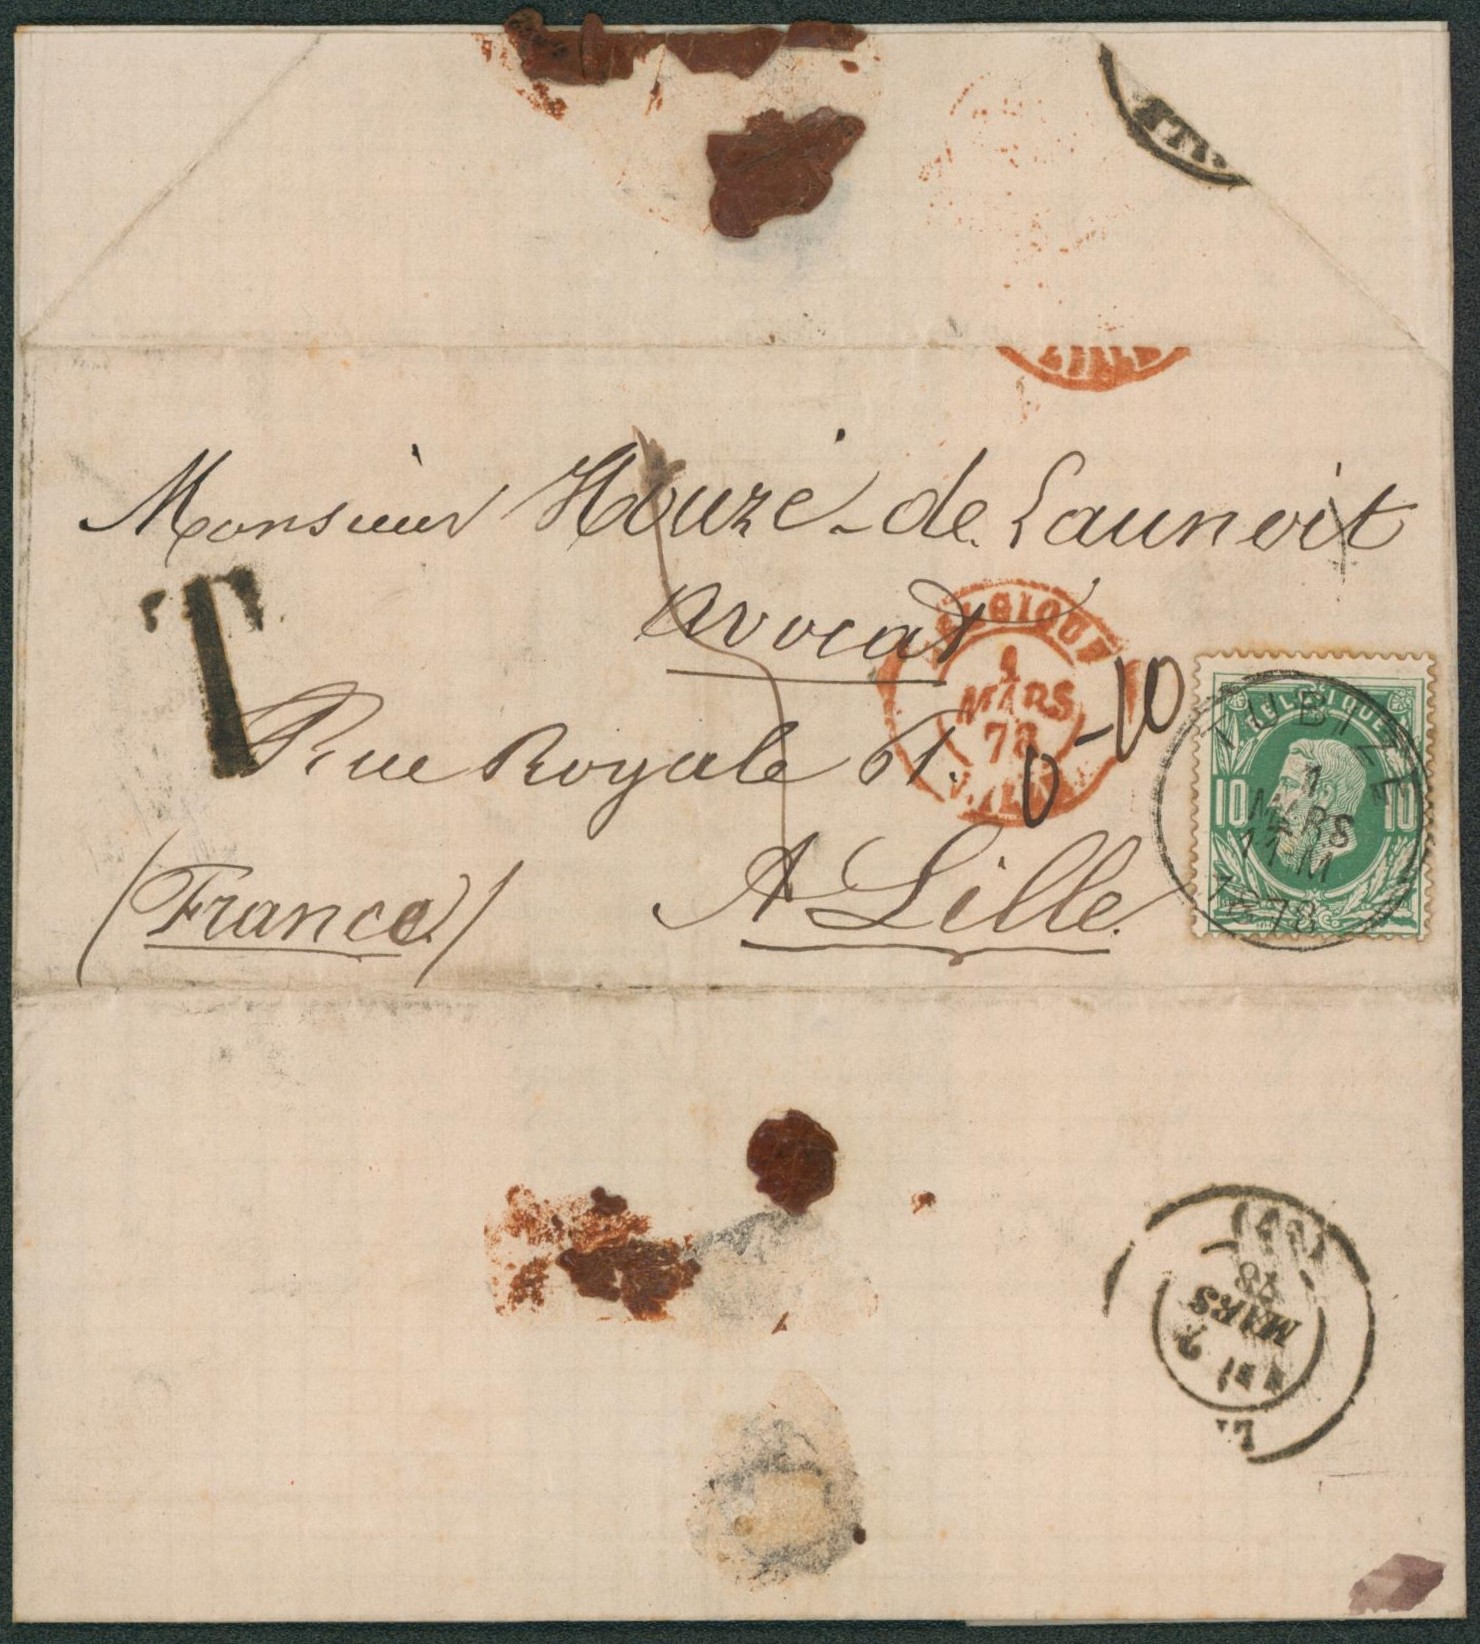 Monsieur Houzé-de Launoit
avocat
Rue Royale 61.
(France) A Lille
T
0-10
BELGIQUE
1
MARS
78
BELGIQUE
10 10
TUBIZE
1
MARS
11-M
1878
(48)
78
MARS
2